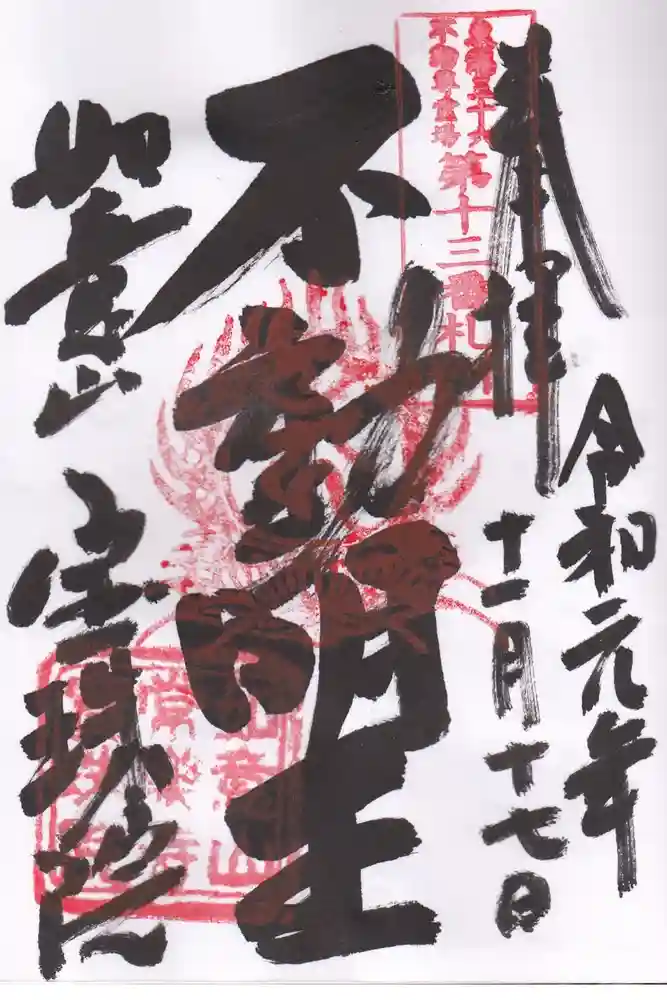 奉拝
令和元年
十一月十七日
東海三十六
不動尊霊場
第十三番札所
不動明王
如意山 宝珠院